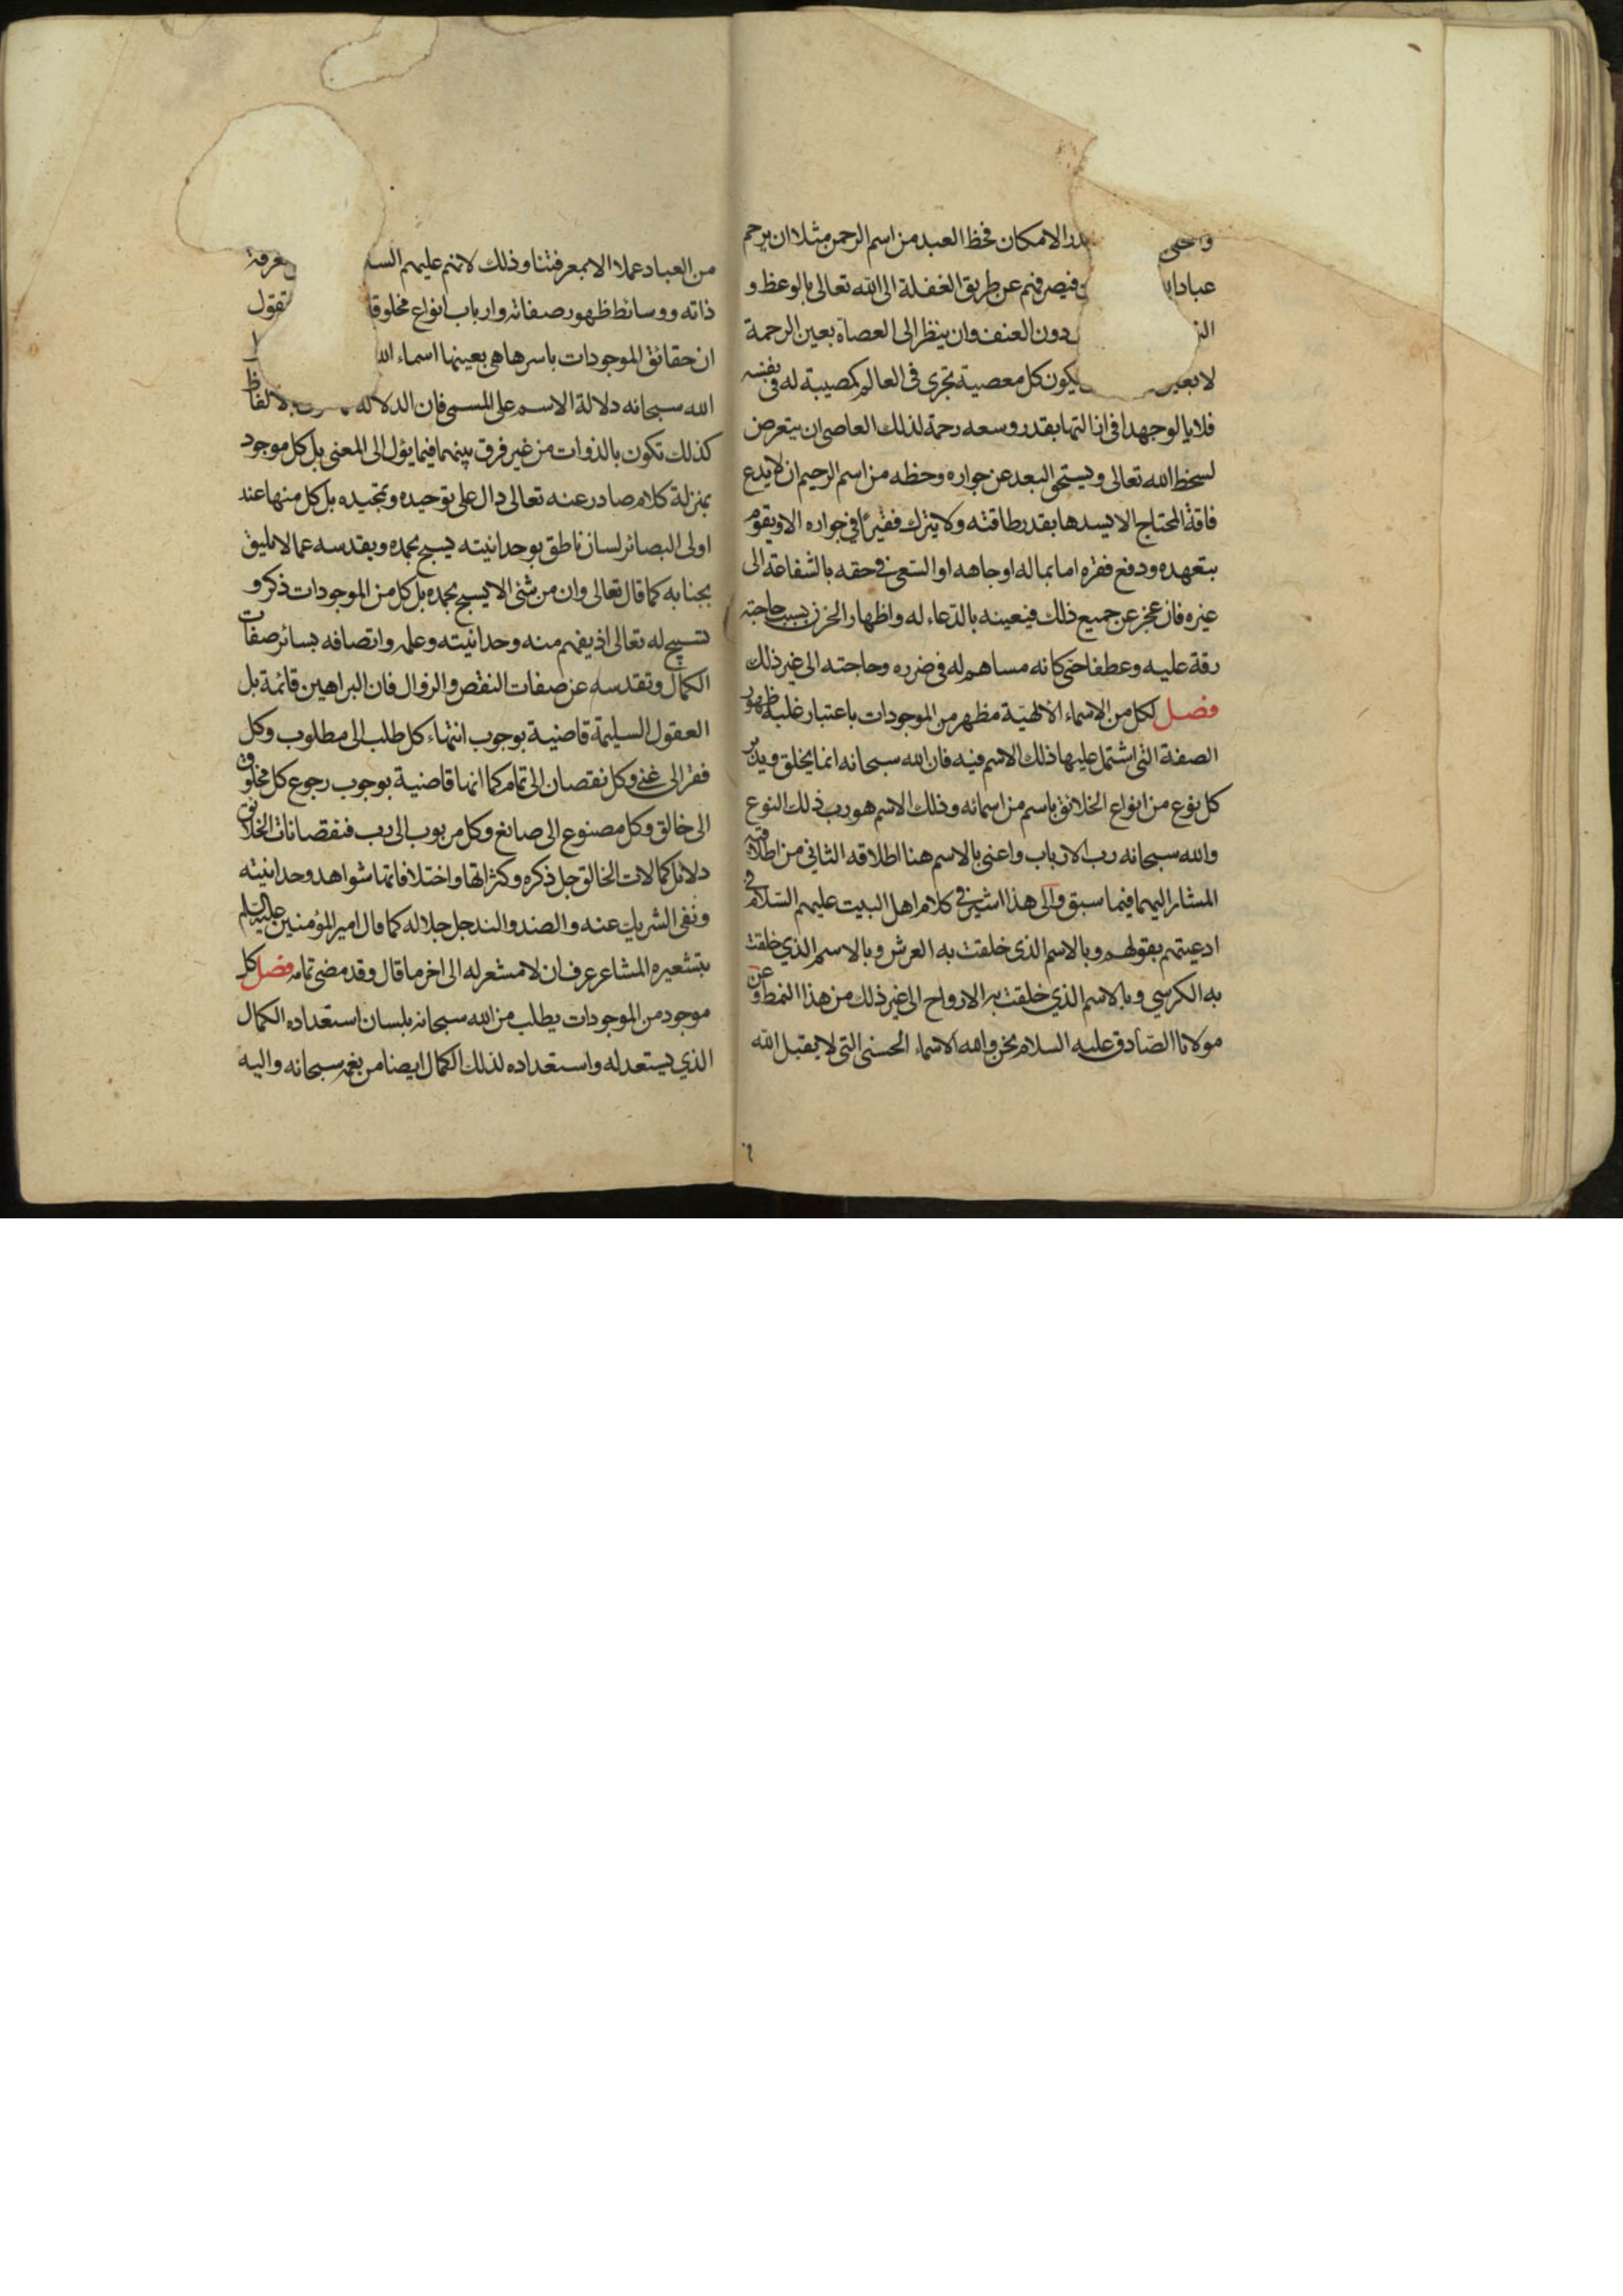 در الامكان فحظ العبد من اسم الرحمن مثلا ان يرحم
عباد فيصرفهم عن طريق الغفلة الى الله تعالى بالوعظ و
دون العنف وان ينظر الى العصاة بعين الرحمة
لا بعين يكون كل معصية تجرى فى العالم كمصيبة له فى نفسه
فلا يالو جهدا فى ازالتها بقدر وسعه رحمة لذلك العاصى ان يتعرض
لسخط الله تعالى ويستحق البعد عن جواره وحظه من اسم الرحيم ان لا يدع
فاقة المحتاج الا يسدها بقدر طاقته ولا يترك فقيرًا فى جواره الا ويقوم
بتعهده ودفع فقره اما بماله او جاهه او السّعى فى حقه بالشفاعة الى
غيره فان عجز عن جميع ذلك فيعينه بالدّعاء له واظهار الحزن بسبب حاجته
رقة عليه وعطفا حتى كانه مساهم له فى ضرره وحاجته الى غير ذلك
فصل لكل من الاسماء الالهيّة مظهر من الموجودات باعتبار غلبة ظهور
الصفة التى اشتمل عليها ذلك الاسم فيه فان الله سبحانه انما يخلق ويدبّر
كل نوع من انواع الخلائق باسم من اسمائه وذلك الاسم هو رب ذلك النوع
والله سبحانه رب الارباب واعنى بالاسم هنا اطلاقه الثانى من اطلاقيه
المشار اليهما فيما سبق والى هذا اشير فى كلام اهل البيت عليهم السّلام فى
ادعيتهم بقولهم وبالاسم الذى خلقت به العرش وبالاسم الذي خلقت
به الكرسي وبالاسم الذي خلقت به الارواح الى غير ذلك من هذا النمط وعن
مولانا الصّادق عليه السلام نحن والله الاسماء الحسنى التى لا يقبل الله
من العباد عملا الا بمعرفتنا وذلك لانهم عليهم
ذاته ووسائط ظهور صفاته وارباب انواع تقول
ان حقائق الموجودات باسرها هى بعينها اسماء
الله سبحانه دلالة الاسم على المسمى فان الدلالة
كذلك تكون بالذوات من غير فرق بينهما فيما يؤل الى المعنى بل كل موجود
بمنزلة كلام صادر عنه تعالى دال على توحيده وتمجيده بل كل منها عند
اولى البصائر لسان ناطق بوحدانيته يسبح بحمده ويقدسه عما لا يليق
بجنابه كما قال تعالى وان من شئ الا يسبح بحمده بل كل من الموجودات ذكر و
تسبيح له تعالى اذ يفهم منه وحدانيته وعلمه واتصافه بسائر صفات
الكمال وتقدسه عن صفات النقص والزوال فان البراهين قائمة بل
العقول السليمة قاضية بوجوب انتهاء كل طلب الى مطلوب وكل
فقر الى غنى وكل نقصان الى تمام كما انها قاضية بوجوب رجوع كل مخلوق
الى خالق وكل مصنوع الى صانع وكل مربوب الى رب فنقصانات الخلائق
دلائل كمالات الخالق جل ذكره وكثراتها واختلافاتها شواهد وحدانيته
ونفى الشريك عنه والضد والند جل جلاله كما قال امير المؤمنين عليه السلم
بتشعيره المشاعر عرف ان لا مشعر له الى اخر ما قال وقد مضى تمامه فصل كل
موجود من الموجودات يطلب من الله سبحانه بلسان استعداده الكمال
الذي يستعد له واستعداده لذلك الكمال ايضا من نعمه سبحانه واليه